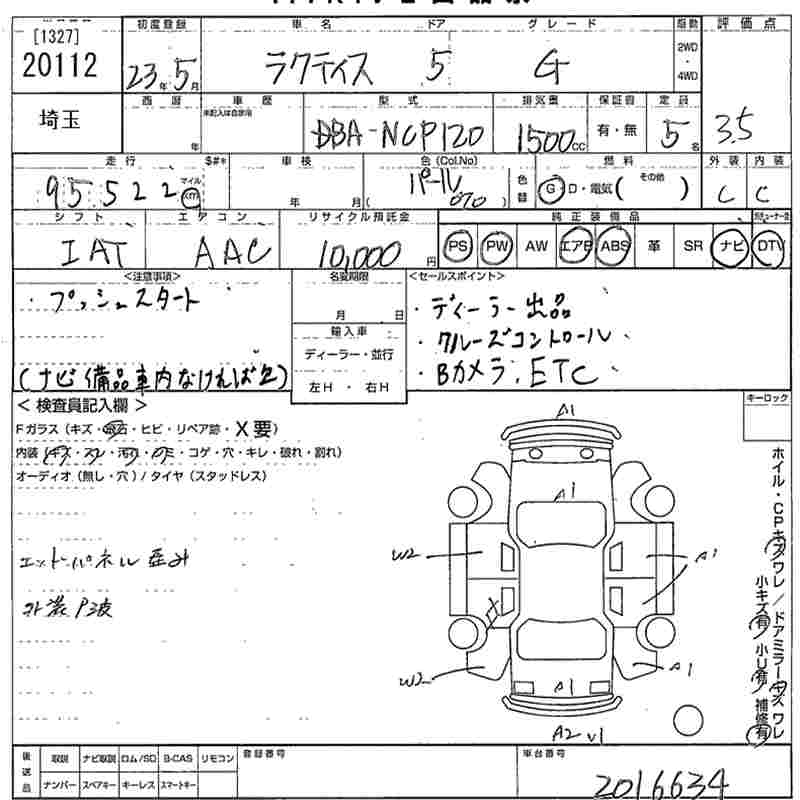 [1327]
20112
初度登録 車名 ドア グレード 駆動 評価点
23年5月 ラクティス 5 G 2WD・4WD
埼玉
西暦 車歴 型式 排気量 保証書 定員
年 未記入は自家用 DBA-NCP120 1500cc 有・無 5名 3.5
走行 $#* 車検 色(Col.No) 燃料 外装 内装
95522 マイル km 年 月 パール ( 070 ) 色替 G・D・電気( その他 ) C C
シフト エアコン リサイクル預託金 純正装備品
IAT AAC 10,000円 PS PW AW エアB ABS 革 SR ナビ DTV
<注意事項> 名変期限 <セールスポイント>
・プッシュスタート 月 日 ・ディーラー出品
輸入車 ・クルーズコントロール
ディーラー・並行
(ナビ備品車内なければ欠) 左H・右H ・Bカメラ、ETC
<検査員記入欄> キーロック
Fガラス(キズ・飛石・ヒビ・リペア跡・X要)
内装(キズ・スレ・汚れ・シミ・コゲ・穴・キレ・破れ・割れ)
オーディオ(無し・穴)/タイヤ(スタッドレス)
A1
A1
W2 A1
エンドパネル歪み
外装P波
X
W2 A1
A1
A2 U1
ホイル・CPキズワレ/ドアミラーキズワレ
小キズ有 小U有 補修有
後送品 取説 ナビ取説 ロム/SD B-CAS リモコン 登録番号 車台番号
ナンバー スペアキー キーレス スマートキー 2016634